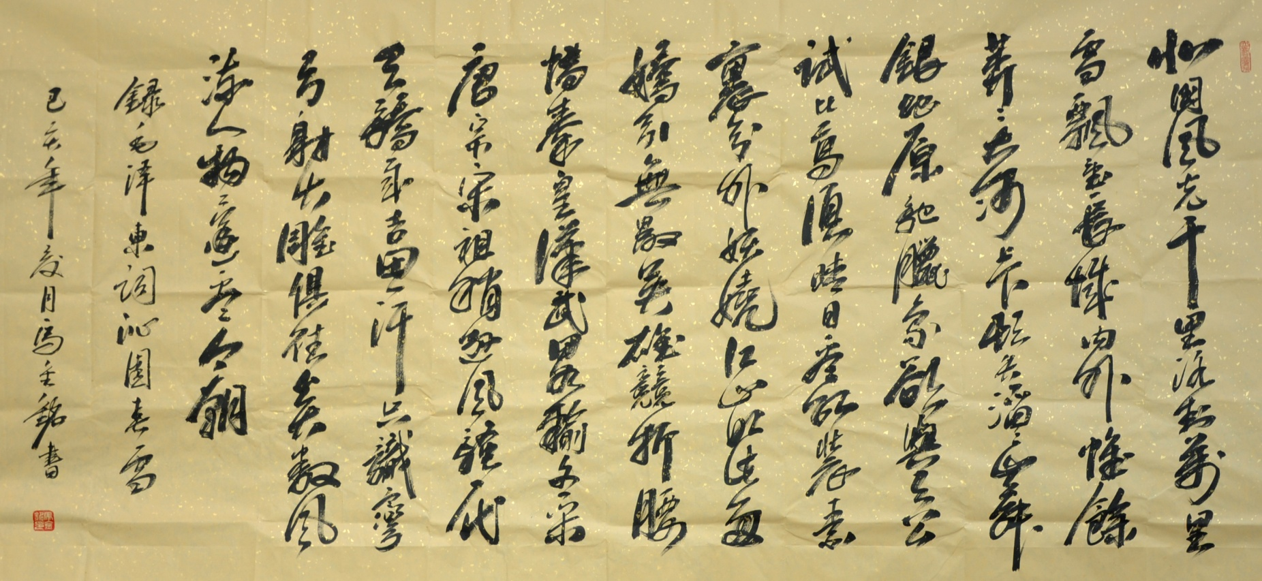 北國風光千里冰封萬里
雪飄望長城内外惟餘
莽々大河上下頓失滔々山舞
銀蛇原馳臘象欲與天公
試比高須晴日看紅裝素
裹分外妖嬈江山如此多
嬌引無數英雄競折腰
惜秦皇漢武略輸文采
唐宗宋祖稍遜風騷一代
天驕成吉思汗只識彎
弓射大雕俱往矣數風
流人物還看今朝
錄毛澤東詞沁園春雪
己亥年夏月馮銘書